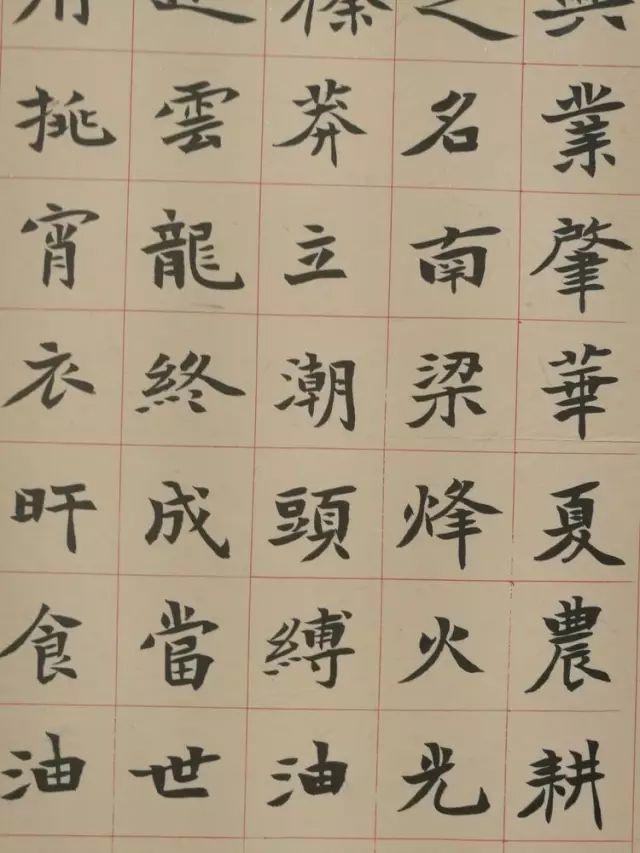 業肇華夏農耕
之名南梁烽火光
榛莽立潮頭縛油
雲龍終成當世
挑宵衣旰食油